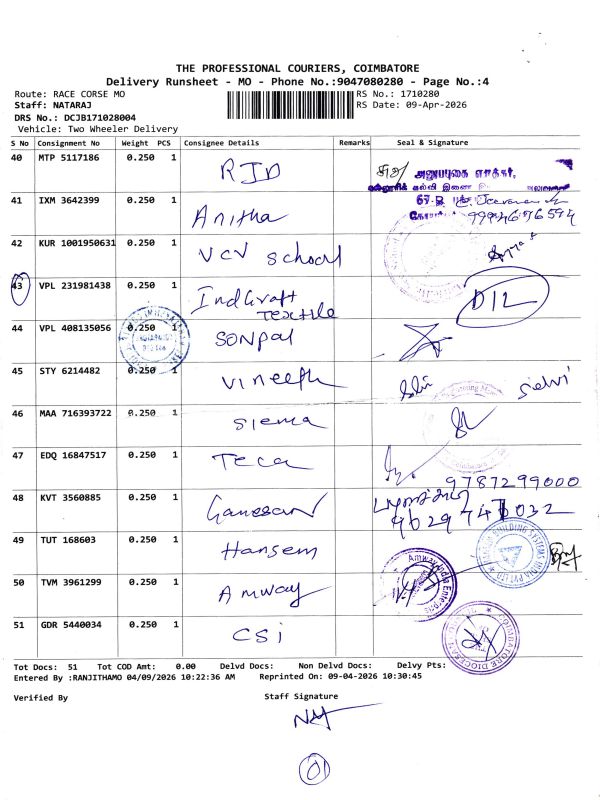 THE PROFESSIONAL COURIERS, COIMBATORE
Delivery Runsheet - MO - Phone No.:9047080280 - Page No.:4
Route: RACE CORSE MO RS No.: 1710280
Staff: NATARAJ RS Date: 09-Apr-2026
DRS No.: DCJB171028004
Vehicle: Two Wheeler Delivery
S No Consignment No Weight PCS Consignee Details Remarks Seal & Signature
40 MTP 5117186 0.250 1 RJD
41 IXM 3642399 0.250 1 Anitha
42 KUR 1001950631 0.250 1 VCV School
43 VPL 231981438 0.250 1 IndCraft Textile DIL
44 VPL 408135056 0.250 1 Sonpal
45 STY 6214482 0.250 1 Vineeth Selvi
46 MAA 716393722 0.250 1 Siema
47 EDQ 16847517 0.250 1 Teca 9787299000
48 KVT 3560885 0.250 1 Ganesan
49 TUT 168603 0.250 1 Hansem
50 TVM 3961299 0.250 1 Amway Amway India Enterprises
51 GDR 5440034 0.250 1 CSi COIMBATORE DIOCESAN
Tot Docs: 51 Tot COD Amt: 0.00 Delvd Docs: Non Delvd Docs: Delvy Pts:
Entered By :RANJITHAMO 04/09/2026 10:22:36 AM Reprinted On: 09-04-2026 10:30:45
Verified By Staff Signature
01